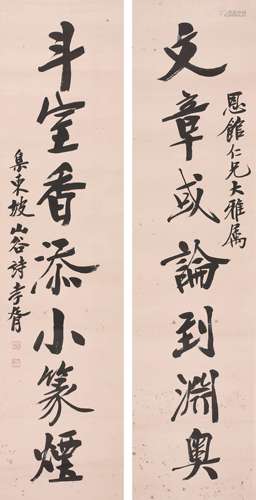 文章或論到淵奧
恩館仁兄大雅属
斗室香添小篆煙
集東坡山谷詩孝胥